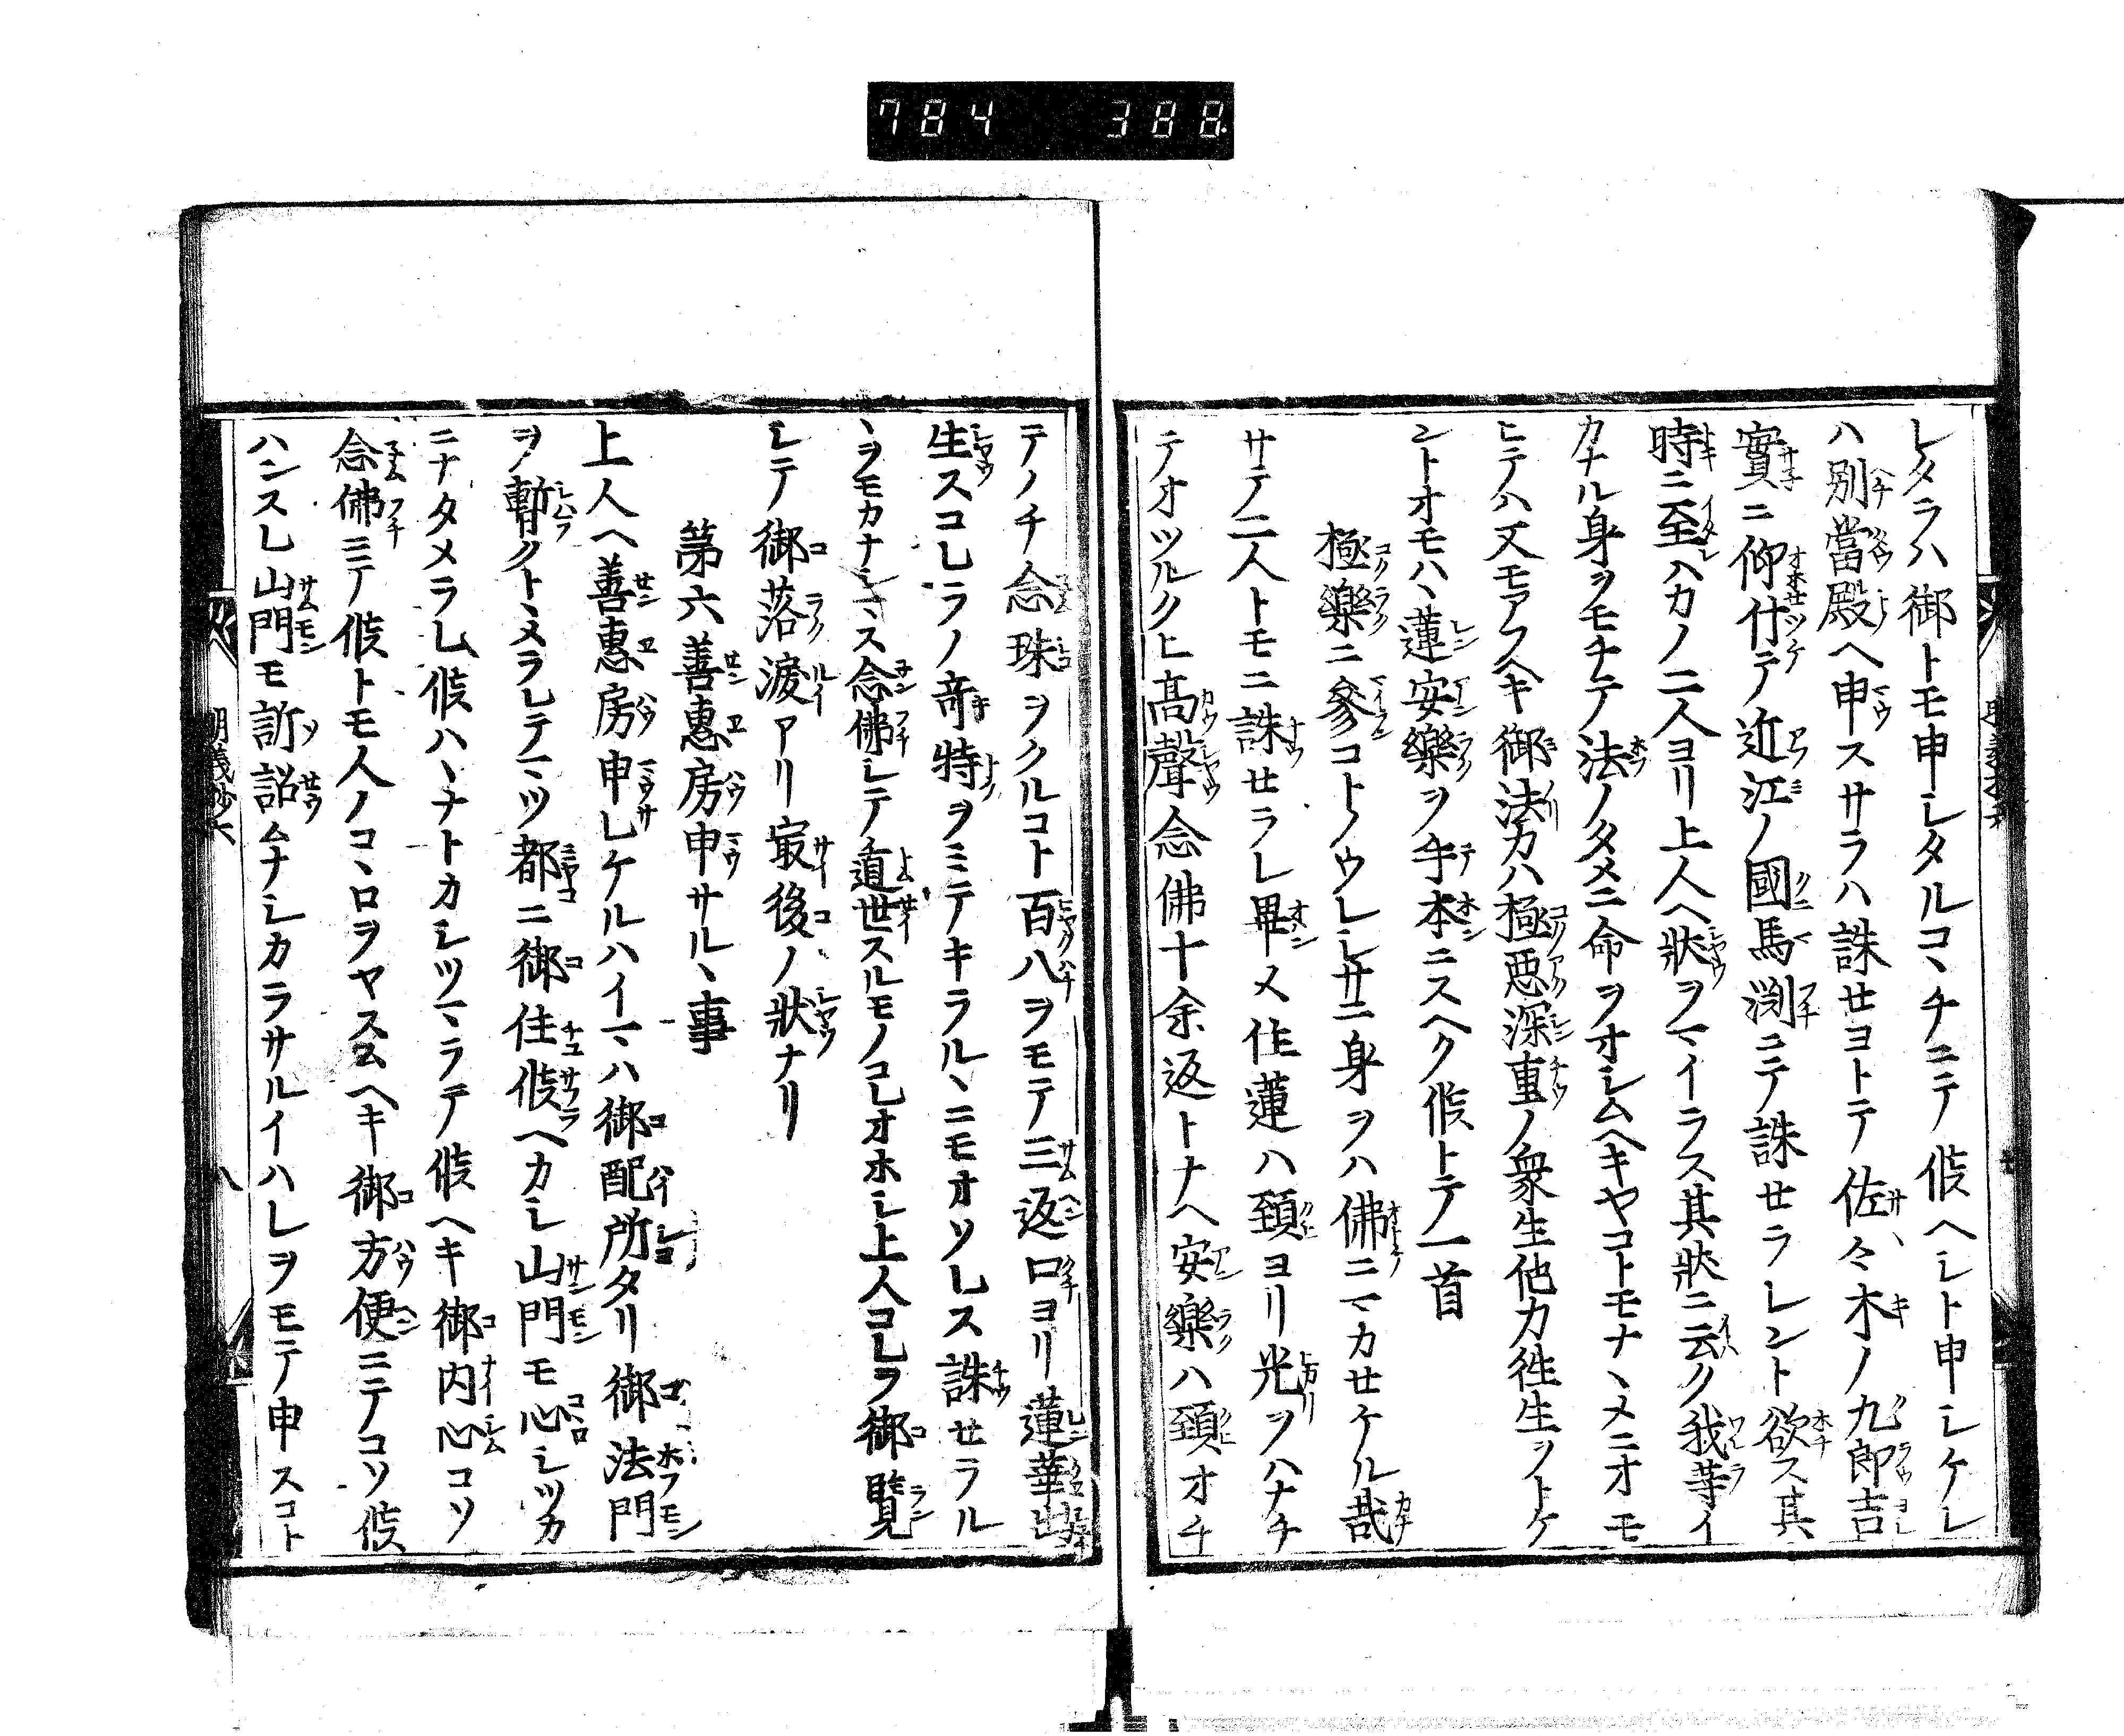 784 388
レタラハ御トモ申シタルコヽチニテ候ヘシト申シケレ
ハ別當殿ヘ申スサラハ誅セヨトテ佐々木ノ九郎吉
實ニ仰付テ近江ノ國馬渕ニテ誅セラレント欲ス其
時ニ至ハカノ二人ヨリ上人ヘ狀ヲマイラス其狀ニ云ク我等イ
カナル身ヲモチテ法ノタメニ命ヲオシムヘキヤコトモナヽメニオモ
ヒテハ又モアフヘキ御法カハ極惡深重ノ衆生他力徃生ヲトケ
ントオモハヽ蓮安樂ヲ手本ニスヘク候トテ一首
極樂ニ參コトノウレシサニ身ヲハ佛ニマカセケル哉
サテ二人トモニ誅セラレ畢ヌ住蓮ハ頚ヨリ光ヲハナチ
テオツルクヒ髙聲念佛十余返トナヘ安樂ハ頚オチ
テノチ念珠ヲクルコト百八ヲモテ三返口ヨリ蓮華出
生スコレラノ竒特ヲミテキラルヽニモオソレス誅セラル
ヽヲモカナシマス念佛シテ遁世スルモノコレオホシ上人コレヲ御覽
シテ御落淚アリ寂後ノ狀ナリ
第六善惠房申サルヽ事
上人ヘ善惠房申シケルハイマハ御配所タリ御法門
ヲ暫クトヽメラレテマツ都ニ御住候ヘカシ山門モ心シツカ
ニナタメラレ候ハヽナトカシツマラテ候ヘキ御内心コソ
念佛ニテ候トモ人ノコヽロヲヤスムヘキ御方便ニテコソ候
ハンスレ山門モ訴詔ムナシカラサルイハレヲモテ申スコト
明義抄六
八